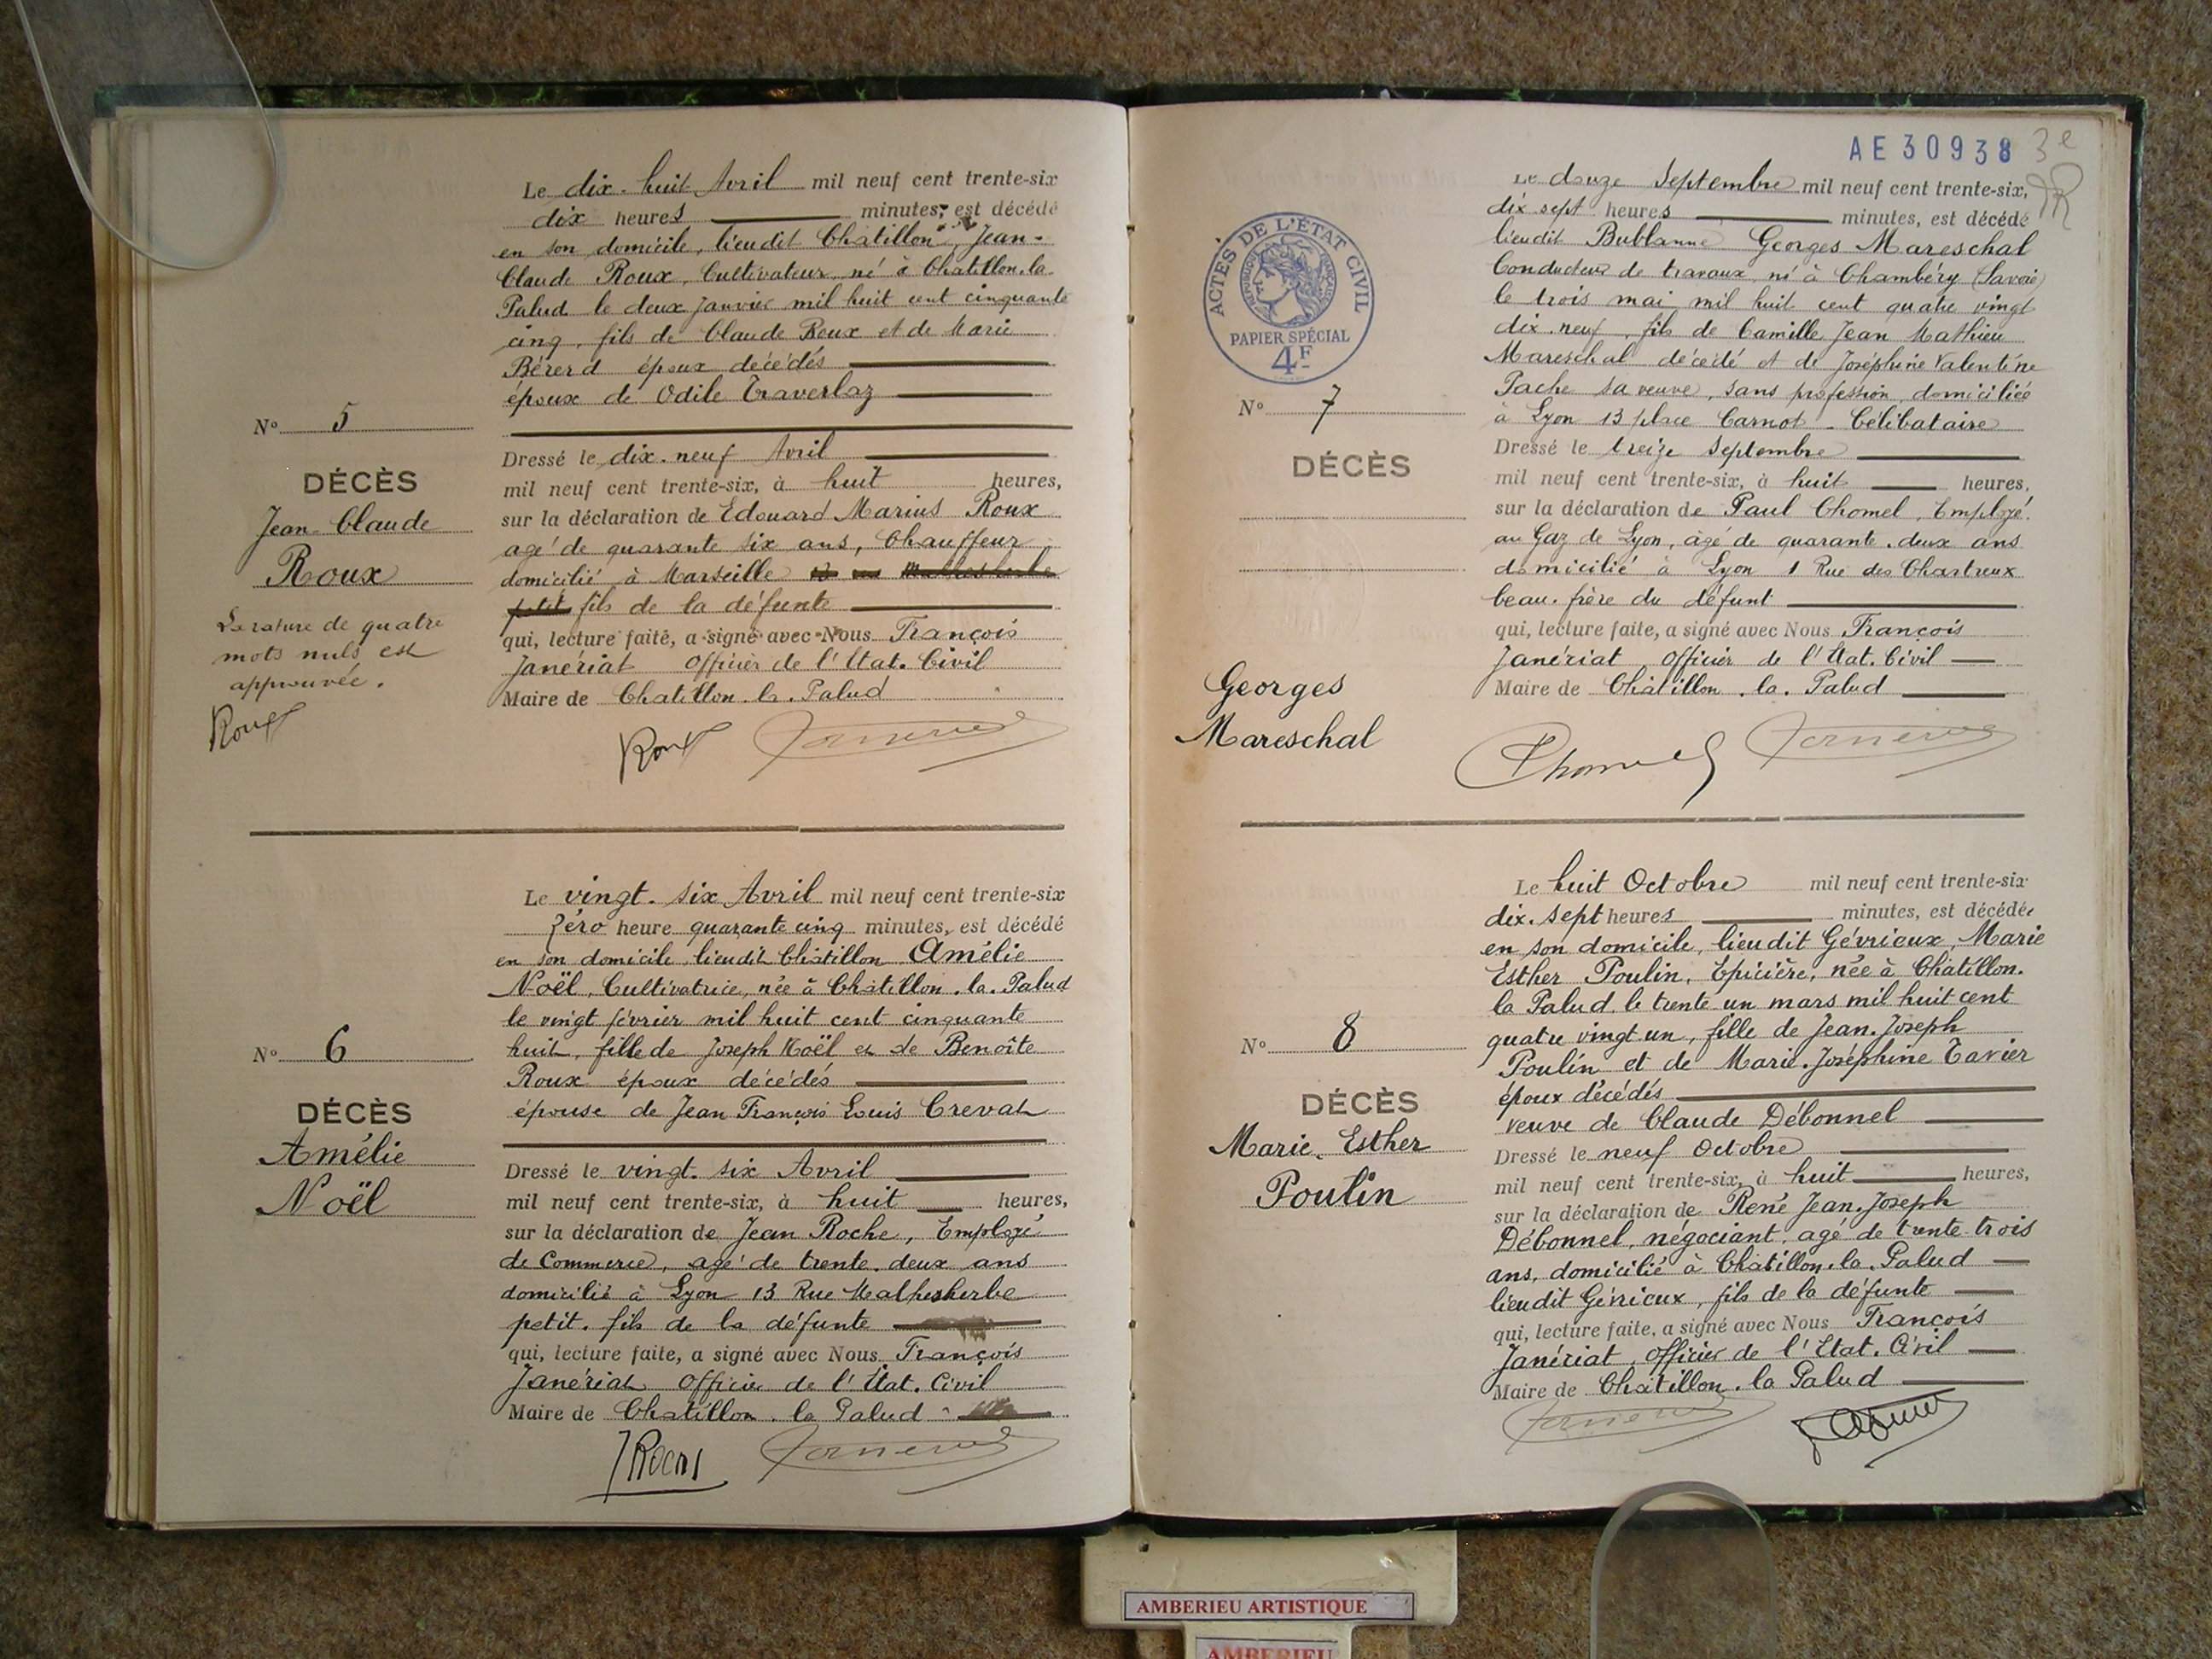 Le dix-huit Avril mil neuf cent trente-six
dix heures minutes, est décédé
en son domicile, lieudit Châtillon, Jean-
Claude Roux, Cultivateur, né à Chatillon. la.
Palud le deux Janvier mil huit cent cinquante
cinq, fils de Claude Roux et de Marie
Bérerd époux décédés
époux de Odile Traverlaz
No 5
DÉCÈS
Jean-Claude
Roux
La rature de quatre
mots nuls est
approuvée.
Roux
Dressé le dix-neuf Avril
mil neuf cent trente-six, à huit heures,
sur la déclaration de Edouard Marius Roux
agé de quarante six ans, Chauffeur
domicilié à Marseille
petit fils de la défunte
qui, lecture faite, a signé avec Nous François
Janériat Officier de l'Etat. Civil
Maire de Chatillon. la. Palud
Roux
Le vingt. six Avril mil neuf cent trente-six
Zéro heure quarante cinq minutes, est décédé
en son domicile lieudit Châtillon Amélie
Noël, Cultivatrice, née à Châtillon. la. Palud
le vingt février mil huit cent cinquante
huit, fille de Joseph Noël et de Benoîte
Roux époux décédés
épouse de Jean François Louis Crevat
No 6
DÉCÈS
Amélie
Noël
Dressé le vingt. six Avril
mil neuf cent trente-six, à huit heures,
sur la déclaration de Jean Roche, Employé
de Commerce, agé de trente. deux ans
domicilié à Lyon 13 Rue Malhesherbe
petit. fils de la défunte
qui, lecture faite, a signé avec Nous François
Janériat Officier de l'Etat. Civil
Maire de Chatillon. la Palud
AE 30938 3e
Le douze Septembre mil neuf cent trente-six,
dix. sept heures minutes, est décédé
lieudit Bublanne Georges Mareschal
Conducteur de travaux, né à Chambéry (Savoie)
le trois mai mil huit cent quatre vingt
dix. neuf, fils de Camille Jean Mathieu
Mareschal décédé et de Joséphine Valentine
Pache sa veuve, sans profession, domiciliée
à Lyon 13 place Carnot. Célibataire
ACTES DE L'ÉTAT CIVIL
RÉPUBLIQUE FRANÇAISE
PAPIER SPÉCIAL
4F
No 7
DÉCÈS
Georges
Mareschal
Dressé le treize Septembre
mil neuf cent trente-six, à huit heures,
sur la déclaration de Paul Chomel, Employé
au Gaz de Lyon, âgé de quarante. deux ans
domicilié à Lyon 1 Rue des Chartreux
beau. frère du défunt
qui, lecture faite, a signé avec Nous François
Janériat Officier de l'Etat. Civil
Maire de Châtillon. la. Palud
Chomel
Le huit Octobre mil neuf cent trente-six
dix. sept heures minutes, est décédée
en son domicile, lieudit Gévrieux, Marie
Esther Poulin, Epicière, née à Châtillon.
la Palud. le trente un mars mil huit cent
quatre vingt un, fille de Jean. Joseph
Poulin et de Marie. Joséphine Tavier
époux décédés
veuve de Claude Débonnel
No 8
DÉCÈS
Marie. Esther
Poulin
Dressé le neuf Octobre
mil neuf cent trente-six, à huit heures,
sur la déclaration de René Jean. Joseph
Débonnel, négociant, agé de trente. trois
ans, domicilié à Châtillon. la. Palud
lieudit Gévrieux, fils de la défunte
qui, lecture faite, a signé avec Nous François
Janériat, Officier de l'Etat. Civil
Maire de Châtillon. la Palud
AMBERIEU ARTISTIQUE
AMBERIEU